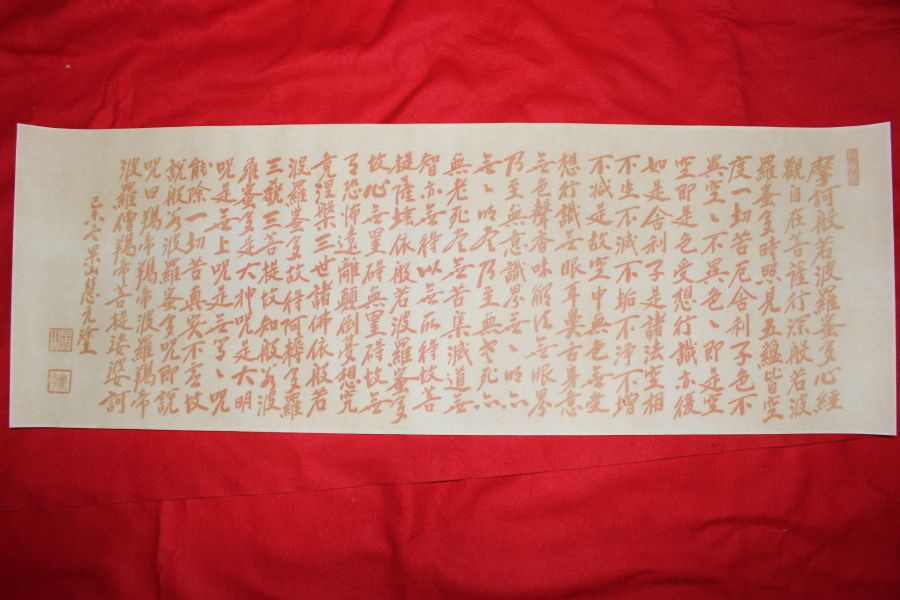 摩訶般若波羅蜜多心經
觀自在菩薩行深般若波
羅蜜多時照見五蘊皆空
度一切苦厄舍利子色不
異空ヽ不異色ヽ即是空
空即是色受想行識亦復
如是舍利子是諸法空相
不生不滅不垢不淨不增
不減是故空中無色無受
想行識無眼耳鼻舌身意
無色聲香味觸法無眼界
乃至無意識界無ヽ明亦
無ヽ明盡乃至無老死亦
無老死盡無苦集滅道無
智亦無得以無所得故菩
提薩埵依般若波羅蜜多
故心無罣碍無罣碍故無
有恐怖遠離顛倒夢想究
竟涅槃三世諸佛依般若
波羅蜜多故得阿耨多羅
三藐三菩提故知般若波
羅蜜多是大神呪是大明
呪是無上呪是無等ヽ呪
能除一切苦真实不虛故
說般若波羅蜜多呪即說
呪曰羯帝羯帝波羅羯帝
波羅僧羯帝菩提娑婆訶
己未冬山慧元